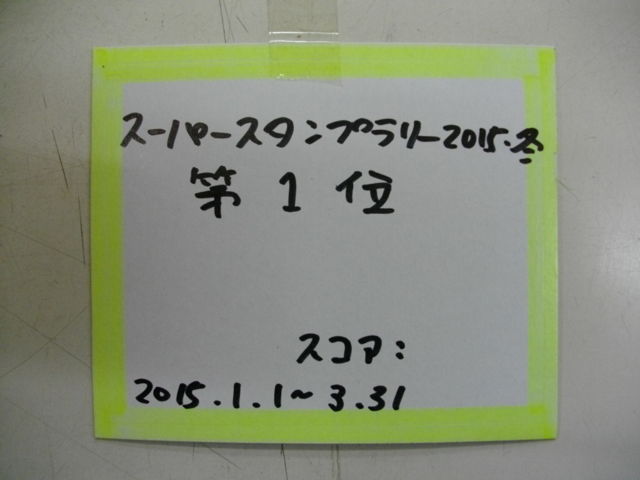 スーパースタンプラリー2015.冬
第1位
スコア:
2015.1.1~3.31